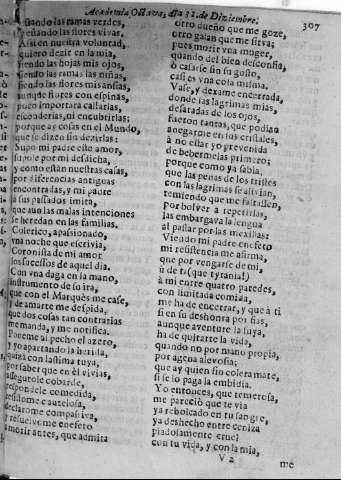 Academia Octava, dia 31. de Diziembre. 307
estando las ramas verdes,
y estando las flores vivas.
Assi en nuestra voluntad,
quiero dezir en la mia,
siendo las hojas mis ojos,
siendo las ramas las niñas,
siendo las flores mis ansias,
aunque flores con espinas,
poco importara callarlas,
esconderlas, ni encubrirlas;
porque ay cosas en el Mundo,
que se dizen sin dezirlas:
Supo mi padre este amor,
supole por mi desdicha,
y como están nuestras casas,
por diferencias antiguas
encontradas, y mi padre
à sus passados imita,
que aun las malas intenciones
se heredan en las familias.
Colerico, apassionado,
vna noche que escrivia,
Coronista de mi amor
los sucessos de aquel dia.
Con vna daga en la mano,
instrumento de su ira,
que con el Marquès me case,
y de amarte me despida,
que dos cosas tan contrarias
me manda, y me notifica.
Poneme al pecho el azero,
y yo apartando la herida,
quizà con lastima tuya,
por saber que en èl vivias,
asseguro le cobarde,
respondele comedida,
resistome cautelosa,
declarome compassiva,
y resuelvome en efeto
à morir antes, que admita
otro dueño que me goze,
otro galan que me sirva;
pues morir vna muger,
quando del bien desconfia,
ò casarse sin su gusto,
casi es vna cosa misma.
Vase, y dexame encerrada,
donde las lagrimas mias,
desatadas de los ojos,
fueron tantas, que podian
anegarme en sus cristales,
à no estar yo prevenida
de bebermelas primero;
porque como ya sabia,
que las penas de los tristes
con las lagrimas se alivian,
temiendo que me faltassen,
por bolver à repetirlas,
las embargava la lengua
al passar por las mexillas:
Viendo mi padre en efeto
mi resistencia me afirma,
que por vengarse de mi,
ù de ti (que tyrania!)
à mi entre quatro paredes,
con limitada comida,
me ha de encerrar, y que à ti
si en su deshonra porfias,
aunque aventure la suya,
ha de quitarte la vida,
quando no por mano propia,
por agena alevosia;
que ay quien sin colera mate,
si se lo paga la embidia.
Yo entonces, que temerosa,
me pareciò que te via
ya rebolcado en tu sangre,
ya deshecho entre ceniza
piadosamente cruel
con tu vida, y con la mia,
V 2 me